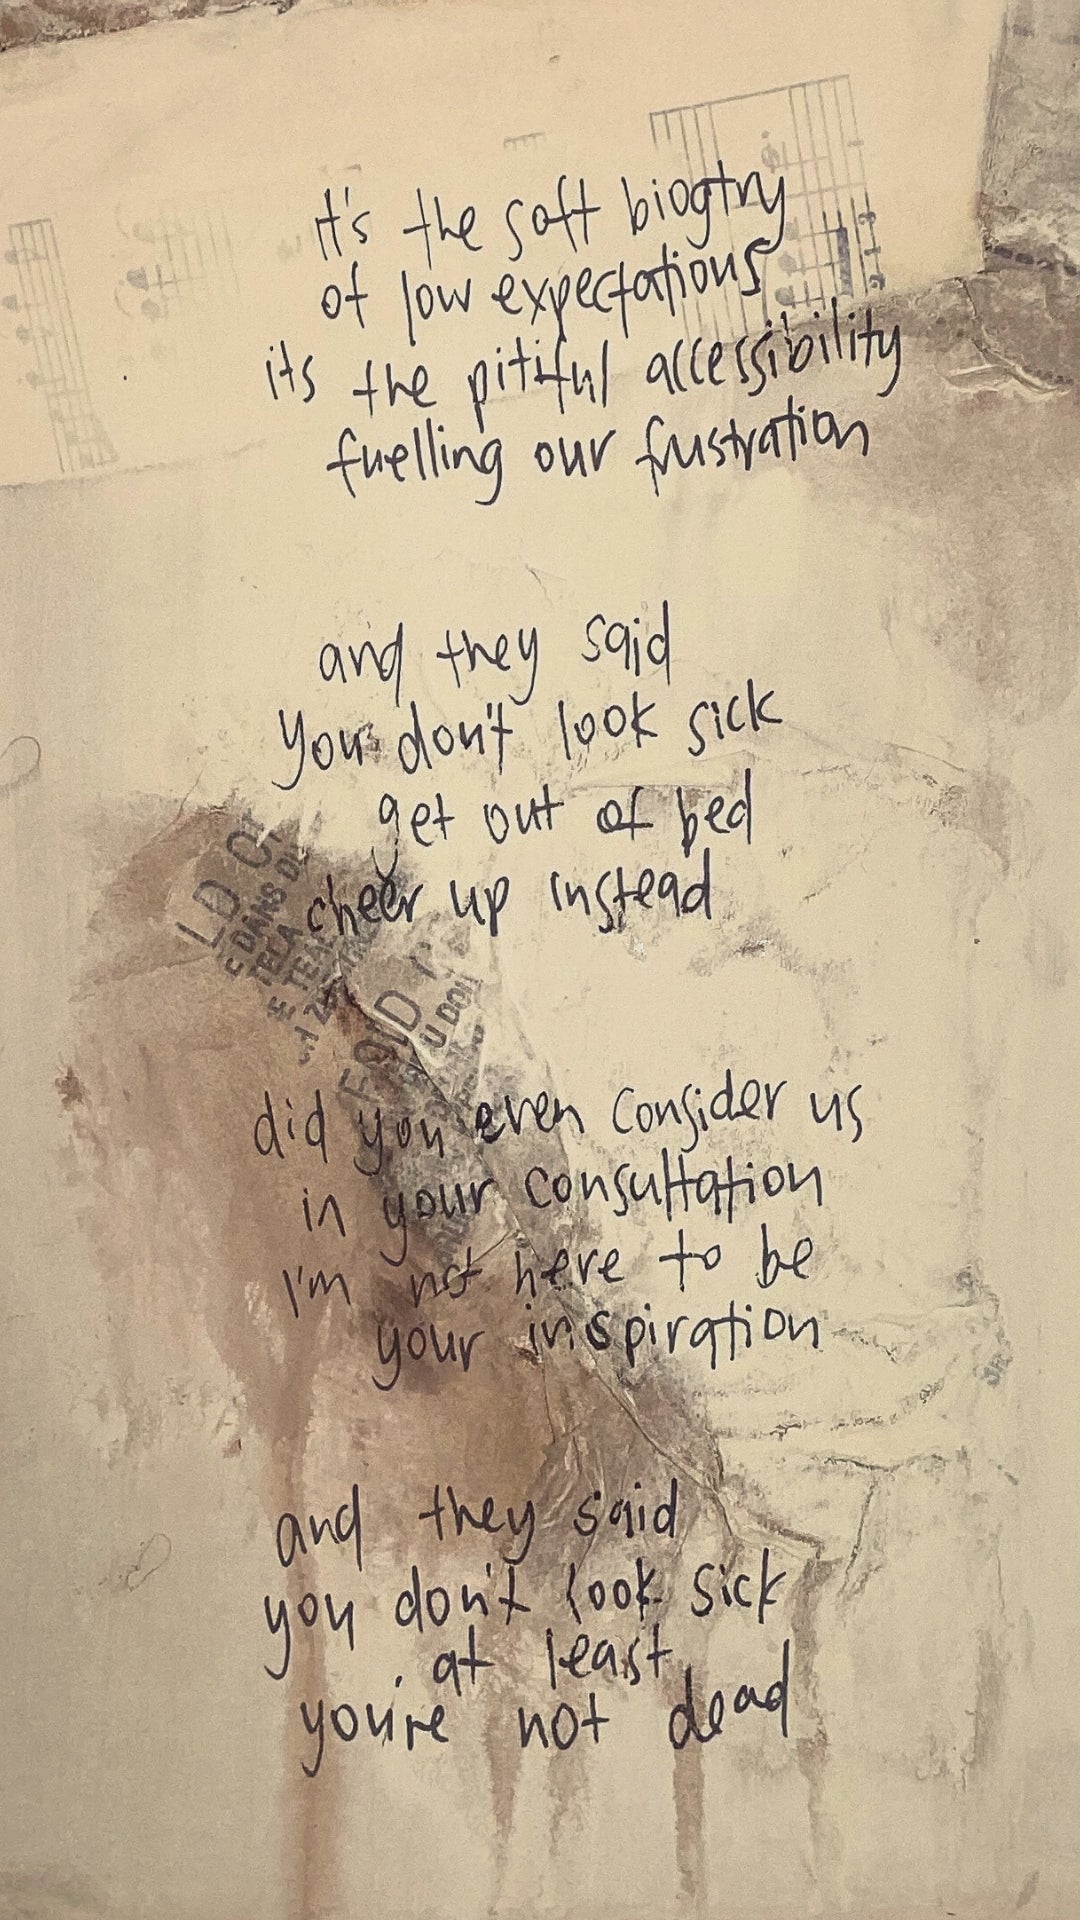 it's the soft biogtry
of low expectations
its the pitiful accessibility
fuelling our frustration
and they said
you don't look sick
get out of bed
cheer up instead
LD C
E DANS D
TELA
E TEA
FOLD
U DOI
did you even consider us
in your consultation
I'm not here to be
your inspiration
and they said
you don't look sick
at least
you're not dead